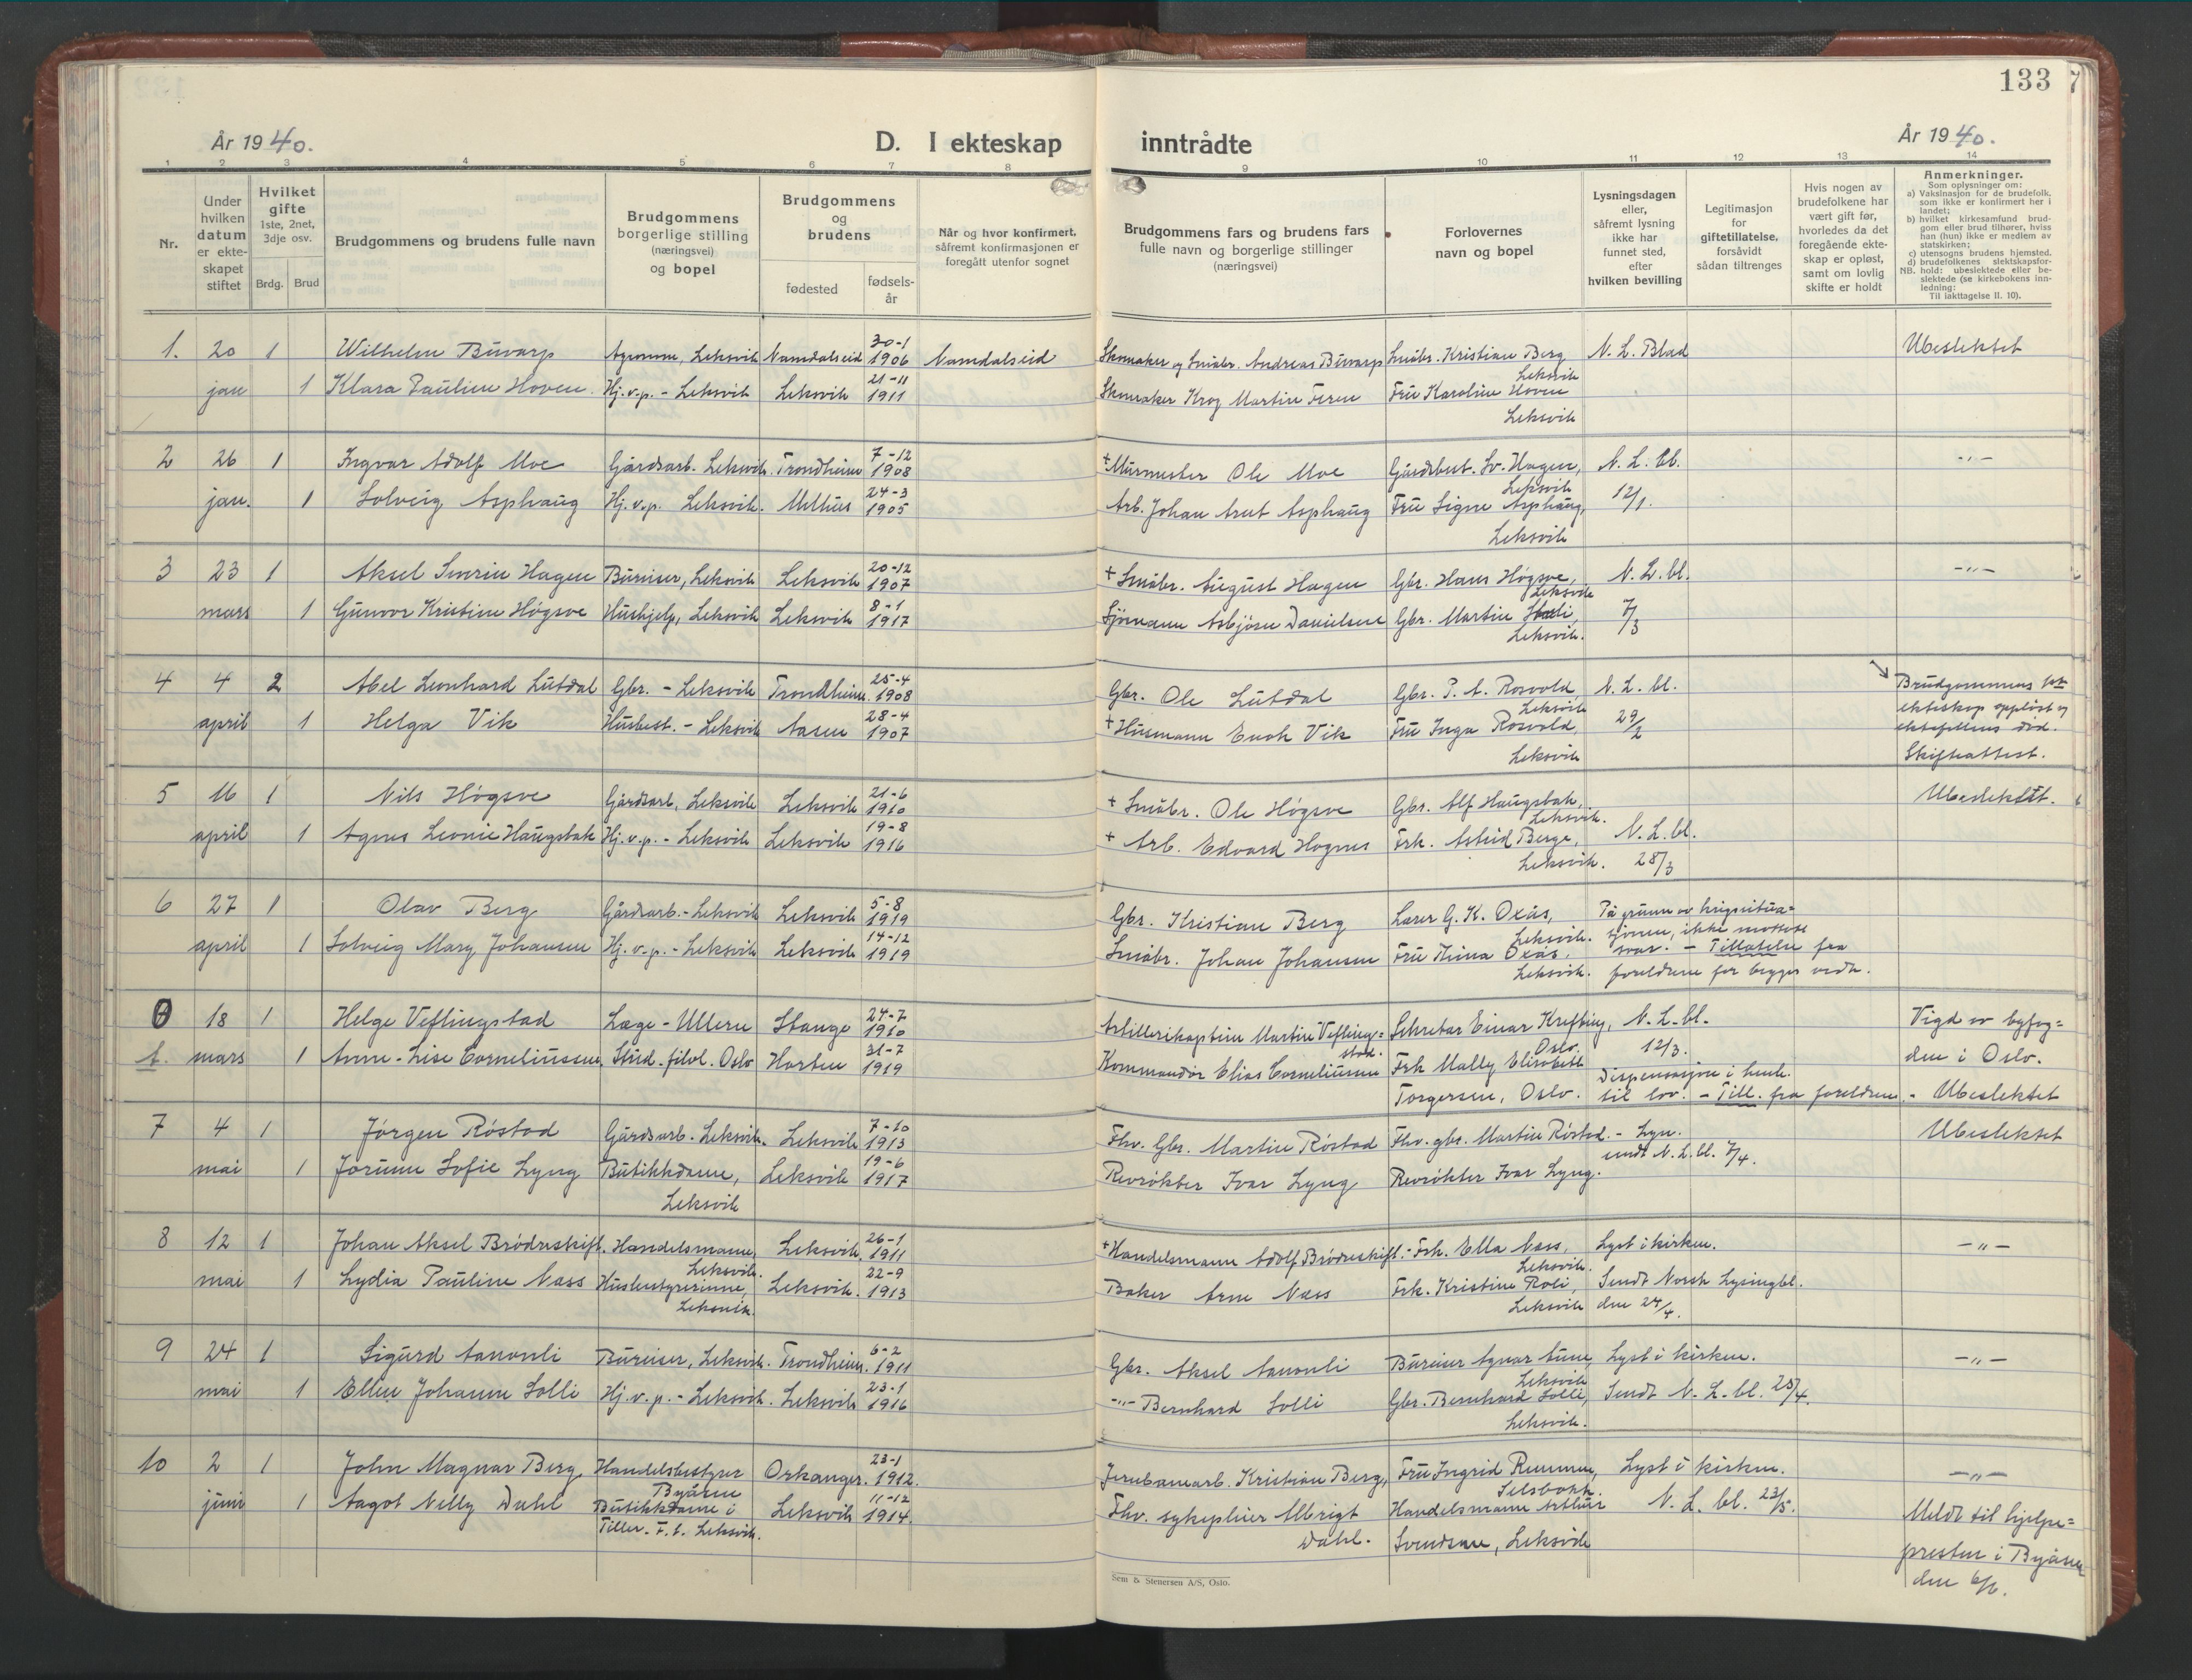 133
År 1940.
D. I ekteskap inntrådte
År 1940.
1 2 3 4 5 6 7 8 9 10 11 12 13 14
Nr.
Under hvilken datum er ekteskapet stiftet
Hvilket gifte 1ste, 2net, 3dje osv.
Brdg. Brud
Brudgommens og brudens fulle navn
Brudgommens borgerlige stilling (næringsvei) og bopel
Brudgommens og brudens
fødested
fødselsår
Når og hvor konfirmert, såfremt konfirmasjonen er foregått utenfor sognet
Brudgommens fars og brudens fars fulle navn og borgerlige stillinger (næringsvei)
Forlovernes navn og bopel
Lysningsdagen eller, såfremt lysning ikke har funnet sted, efter hvilken bevilling
Legitimasjon for giftetillatelse, forsåvidt sådan tiltrenges
Hvis nogen av brudefolkene har vært gift før, hvorledes da det foregående ekteskap er opløst, samt om lovlig skifte er holdt
Anmerkninger.
Som oplysninger om:
a) Vaksinasjon for de brudefolk, som ikke er konfirmert her i landet;
b) hvilket kirkesamfund brudgom eller brud tilhører, hviss han (hun) ikke er medlem av statskirken;
c) utensogns brudens hjemsted.
d) brudefolkenes slektskapsforhold: ubeslektede eller beslektede (se kirkebokens innledning:
NB.
Til iakttagelse II. 10).
1. 20 1 Wilhelm Buvarp Agronom, Leksvik Namdalseid 30-1 1906 Namdalseid Skomaker og Småbr. Andreas Buvarp Småbr. Kristian Berg Leksvik N. L. Blad Ubeslektet
jan 1 Klara Pauline Hoven Hj.v.p. - Leksvik Leksvik 21-11 1911 Skomaker Krog Martin Feren Fru Karoline Hoven Leksvik
2 26 1 Ingvar Adolf Moe Gårdsarb. Leksvik. Trondheim 7-12 1908 + Murmester Ole Moe Gårdbest. Sv. Hagen, Leksvik N. L. bl. -"-
jan. 1 Solveig Asphaug Hj.v.p. Leksvik. Melhus 24-3 1905 Arb. Johan Arnt Asphaug Fru Signe Asphaug, Leksvik 12/1.
3 23 1 Aksel Sverin Hagen Bureiser, Leksvik Leksvik 20-12 1907 + Småbr. August Hagen Gbr. Hans Høgsve, Leksvik N. L. bl. -"-
mars 1 Gunvor Kristine Høgsve Hushjelp, Leksvik Leksvik 8-1 1917 Sjømann Asbjørn Danielsen Gbr. Martin Leksvik. 7/3
4 4 2 Abel Leonhard Lutdal Gbr. - Leksvik Trondheim. 25-4 1908 Gbr. Ole Lutdal Gbr. P. A. Rosvold Leksvik N. L. bl. Brudgommens
april 1 Helga Vik Husbest. - Leksvik Aasen 28-4 1907 + Husmann Enok Vik Fru Inga Rosvold, Leksvik 29/2 ekteskap oppløst v
ektefellens død.
Skifteattest.
5 16 1 Nils Høgsve Gårdsarb, Leksvik Leksvik 21-6 1910 + Småbr. Ole Høgsve Gbr. Alf Haugsbak, Leksvik. Ubeslektet.
april 1 Agnes Leonie Haugsbak Hj.v.p. - Leksvik Leksvik 19-8 1916 + Arb. Edvard Hognes Frk. Astrid Berge, Leksvik. N. L. bl. 28/3
6 27 1 Olav Berg Gårdsarb. - Leksvik Leksvik 5-8 1919 Gbr. Kristian Berg Lærer G. K. Oxås, Leksvik. På grunn av krigssitua=
april 1 Solveig Mary Johansen Hj.v.p. - Leksvik Leksvik 14-12 1919 Småbr. Johan Johansen Fru Oxås, Leksvik. sjonen, ikke mottatt svar. - Tillatelse fra
foreldrene for begges vedk.
18 1 Helge Veflingstad Læge - Ullern Stange 24-7 1910 Artillerikaptein Martin Veflingstad. Sekretær Einar Krefting, Oslo. N. L. bl. 12/3. Vigd av byfog=
mars 1 Anne-Lise Corneliussen Stud. filol. Oslo Horten 31-7 1919 Kommandør Elias Corneliussen Frk Mally Elisabeth Torgersen, Oslo. Dispensasjon i henh. til lov. - Till. fra foreldrene. den i Oslo.
- Ubeslektet
7 4 1 Jørgen Røstad Gårdsarb. Leksvik. Leksvik 7-10 1913 Fhv. Gbr. Martin Røstad Fhv. gbr. Martin Røstad. - Lyn. Ubeslektet
mai 1 Jorunn Sofie Lyng Butikkdame, Leksvik Leksvik 19-6 1917 Revrøkter Ivar Lyng Revrøkter Ivar Lyng. sendt N. L. bl. 7/4.
8 12 1 Johan Aksel Brødreskift. Handelsmann, Leksvik. Leksvik. 26-1 1911 + Handelsmann Adolf Brødreskift. - Frk. Ella Næss, Leksvik. Lyst i kirken. -"-
mai 1 Lydia Pauline Næss Husbestyrerinne, Leksvik. Leksvik. 22-9 1913 Baker Arne Næss Frk. Kristine Roli, Leksvik Sendt Norsk Lysingbl. den 24/4.
9 24 1 Sigurd Aanonli Bureiser, Leksvik. Trondheim. 6-2 1911 Gbr. Aksel Aanonli Bureiser Agnar Aune, Leksvik Lyst i kirken. -"-
mai 1 Ellen Johanne Solli Hj.v.p. - Leksvik. Leksvik 23-1 1916 -"- Bernhard Solli Gbr. Bernhard Solli, Leksvik. Sendt N. L. bl. 25/4.
10 2 1 John Magnar Berg, Handelsbestyrer Byåsen Orkanger. 23-1 1912. Jernbanearb. Kristian Berg, Fru Ingrid Remmen, Selsbakk. Lyst i kirken. -"-
juni 1 Aagot Nelly Dahl Butikkdame i Tiller. F. t. Leksvik. Leksvik 11-12 1914. Fhv. sykepleier Albrigt Dahl. Handelsmann Arthur Svendsen, Leksvik N. L. bl. 23/5. Meldt til hjelpe=
presten i Byåsen
den 6/6.
Sem & Stenersen A/S, Oslo.